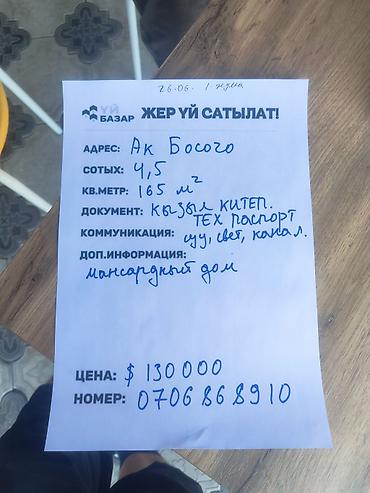 26.06. 1-жума
ҮЙ БАЗАР
ЖЕР ҮЙ САТЫЛАТ!
АДРЕС: Ак Босого
СОТЫХ: 4,5
КВ.МЕТР: 165 м²
ДОКУМЕНТ: КЫЗЫЛ КИТЕП.
ТЕХ ПАСПОРТ
КОММУНИКАЦИЯ: суу, свет, канал.
ДОП.ИНФОРМАЦИЯ:
мансардный дом
ЦЕНА: $ 130 000
НОМЕР: 0706868910